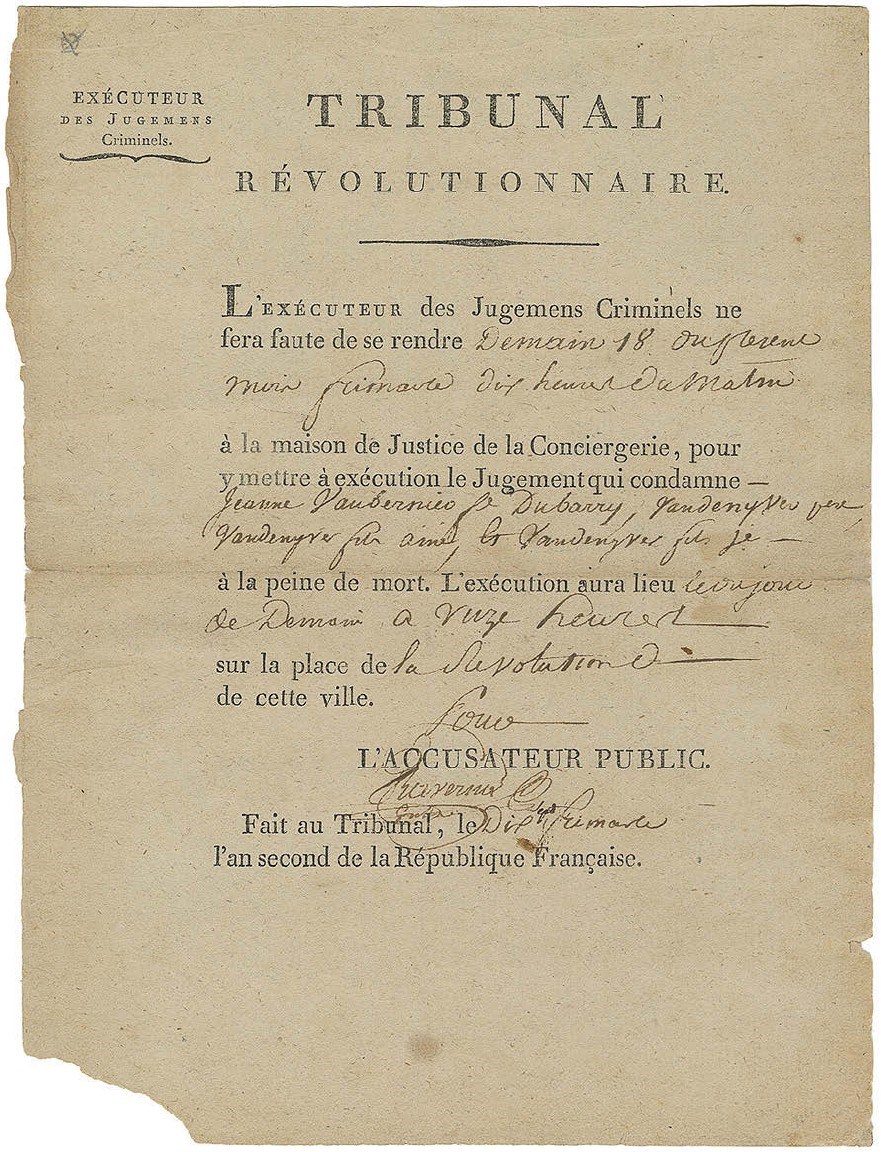 EXÉCUTEUR
DES JUGEMENS
Criminels.
TRIBUNAL
RÉVOLUTIONNAIRE.
L'EXÉCUTEUR des Jugemens Criminels ne
fera faute de se rendre Demain 18 du present
mois frimaire dix heures du Matin
à la maison de Justice de la Conciergerie, pour
y mettre à exécution le Jugement qui condamne —
Jeanne Vaubernier fe Dubarry, Vandenyver pere,
Vandenyver fils ainé, et Vandenyver fils je —
à la peine de mort. L'exécution aura lieu jour
de Demain a onze heures —
sur la place de la Revolution —
de cette ville.
L'ACCUSATEUR PUBLIC.
Fait au Tribunal, le Dix sept frimaire
l'an second de la République Française.